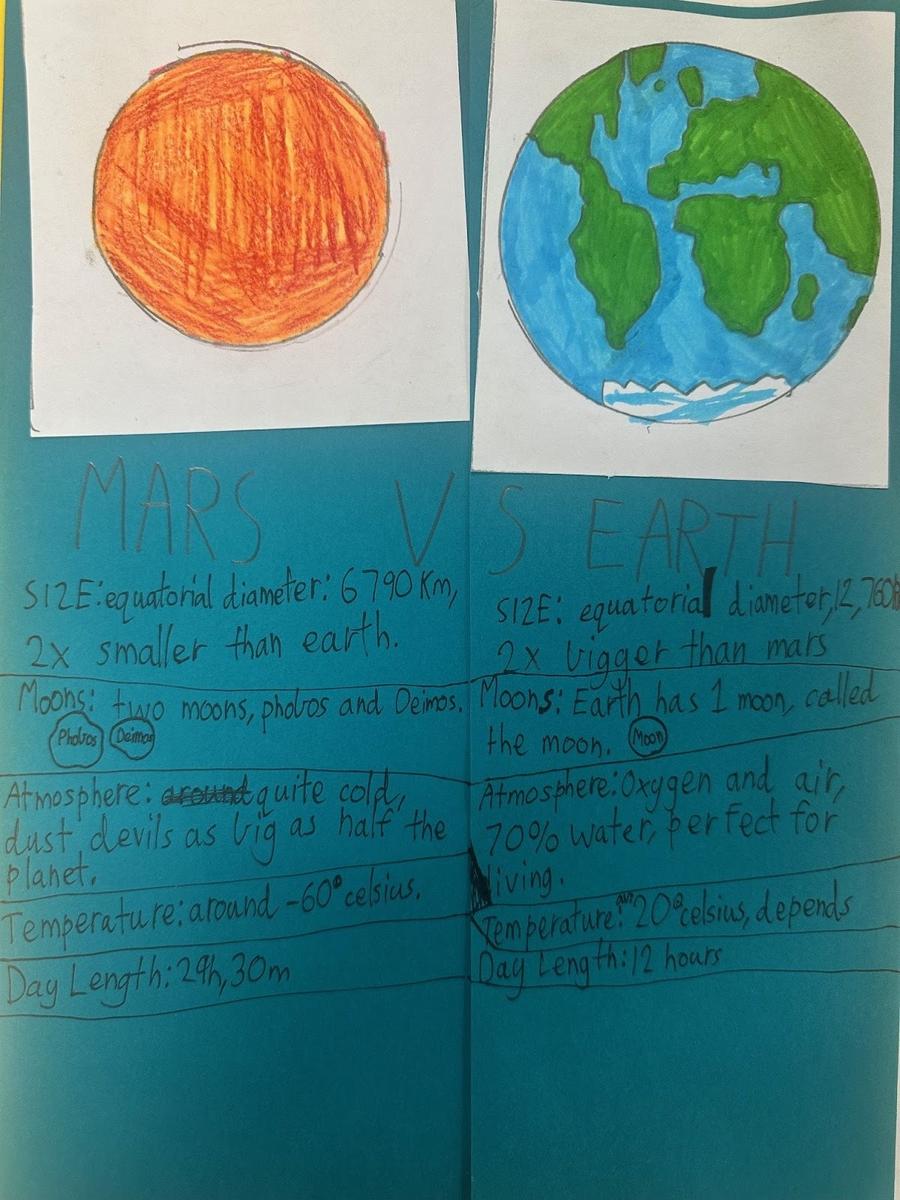 MARS VS EARTH
SIZE: equatorial diameter: 6790 Km,
2x smaller than earth.
Moons: two moons, phobos and Deimos.
Phobos Deimos
Atmosphere: around quite cold,
dust devils as big as half the
planet.
Temperature: around -60° celsius.
Day Length: 29h, 30m
SIZE: equatorial diameter, 12,760k
2x bigger than mars
Moons: Earth has 1 moon, called
the moon. Moon
Atmosphere: Oxygen and air,
70% water, perfect for
living.
Temperature: 20° celsius, depends
Day Length: 12 hours